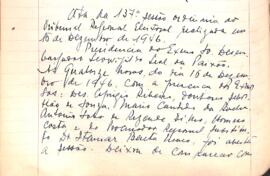 Ata da 137ª sessão ordinária do
Tribunal Regional Eleitoral, realizada em
16 de Dezembro de 1946.
Presidencia do Exmo Sr. Desem-
bargador Leovigildo Leal da Paixão.
Às quatorze horas do dia 16 de Dezem-
bro de 1946, com a presença dos Exmos
Srs. Des. Ribeiro, doutores
de Souza, Mario Candido da Rocha,
Antonio João de Rezende
Costa e do Procurador Regional Substitu-
to Dr. Itamar foi aberta
a sessão. Deixou de comparecer com